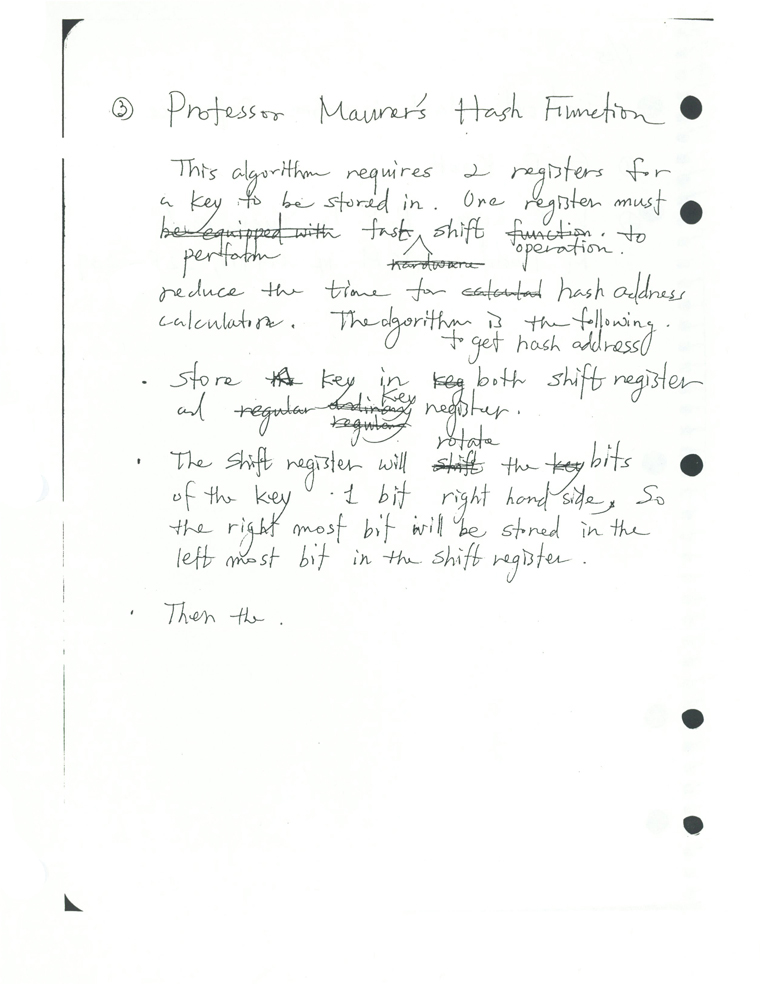 ③ Professor Maurer's Hash Function
This algorithm requires 2 registers for
a key to be stored in. One register must
be equipped with fast shift function. to
perform hardware operation.
reduce the time for calculat hash address
calculation. The algorithm is the following.
to get hash address
• Store key in key both shift register
and regular ordinary key register.
regular
rotate
• The shift register will shift the key bits
of the key 1 bit right hand side, So
the right most bit will be stored in the
left most bit in the shift register.
• Then the .